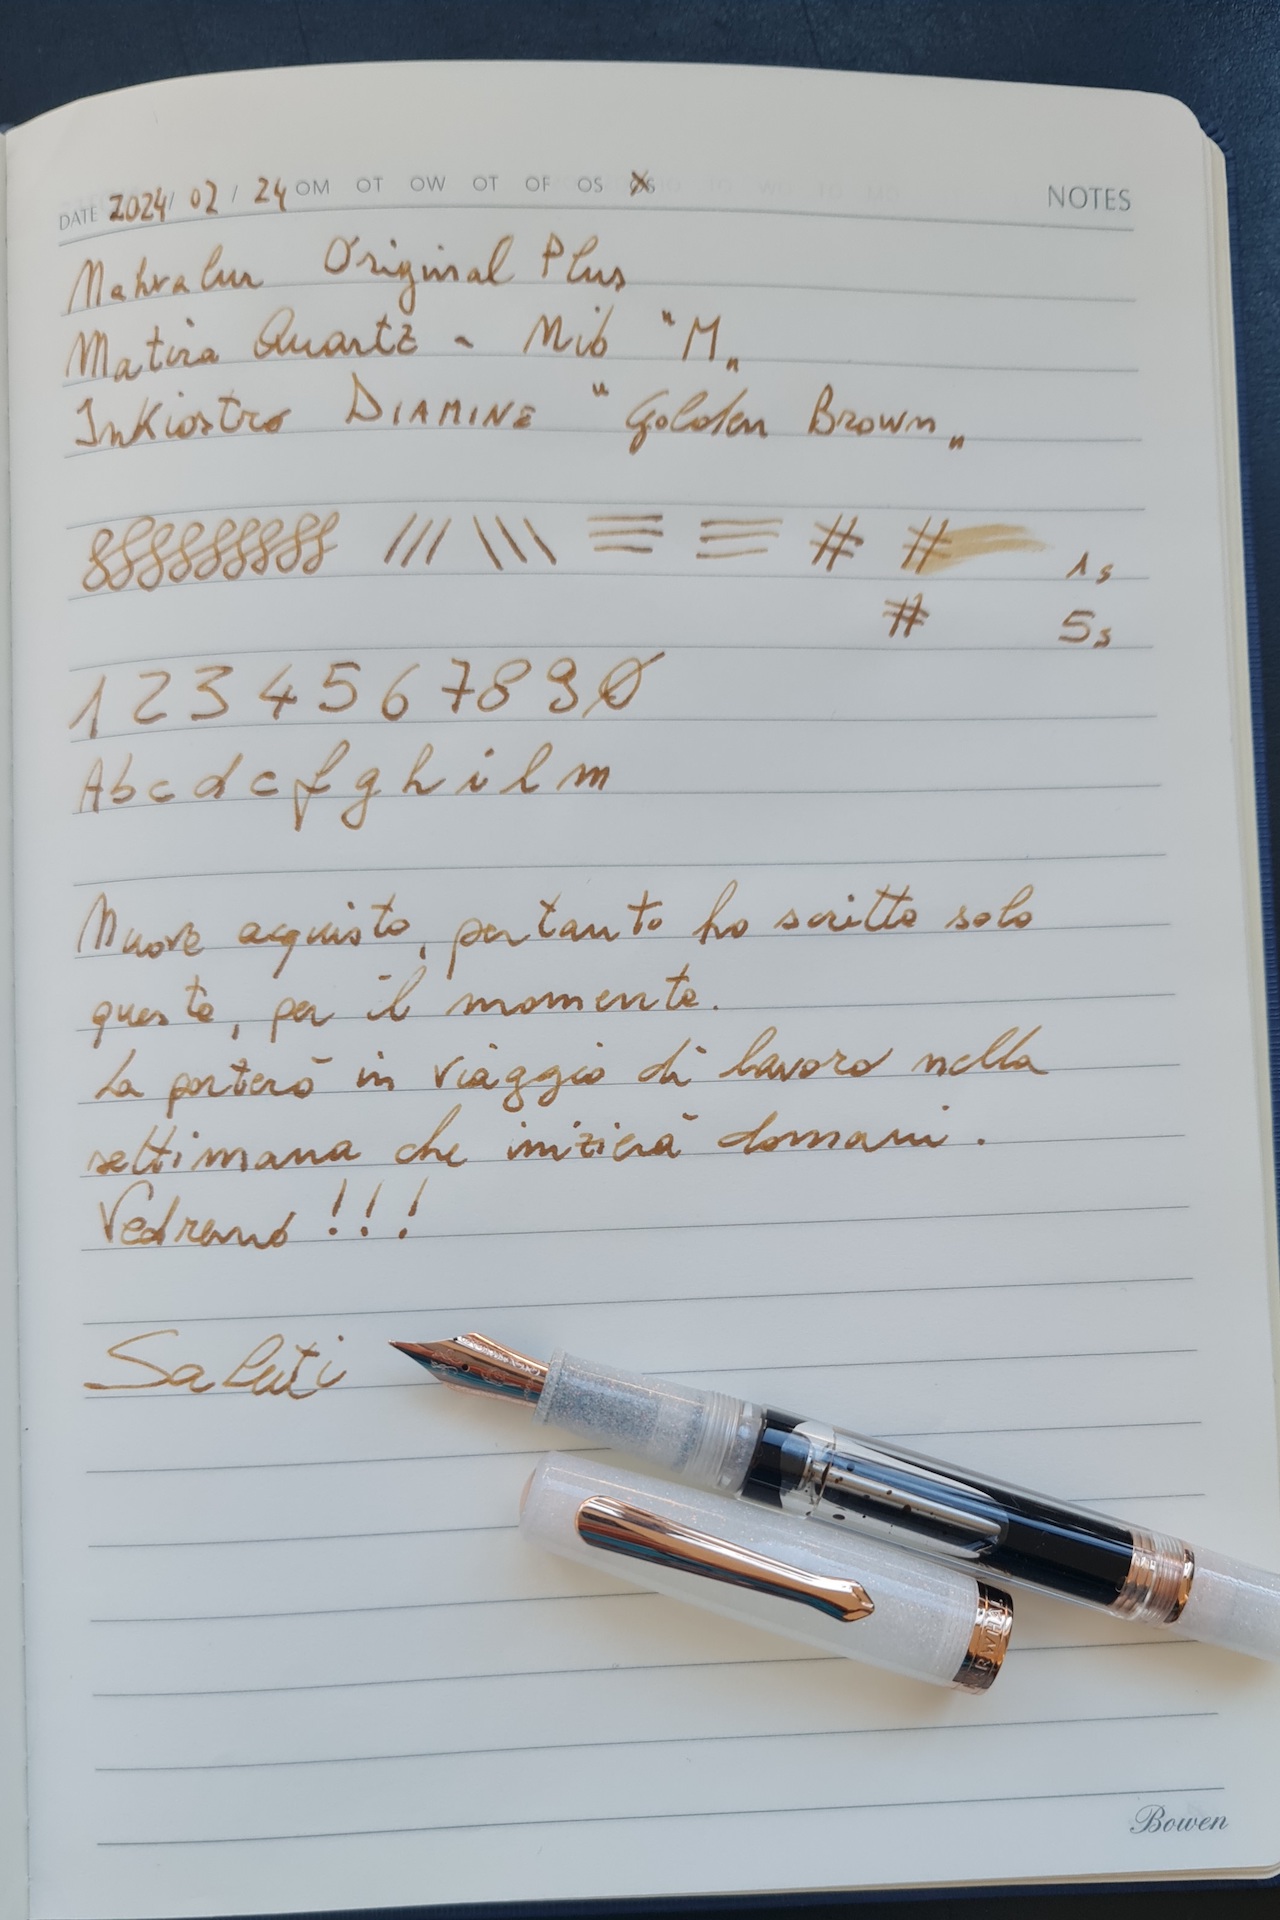 DATE 2024/ 02 / 24 OM OT OW OT OF OS OS NOTES
Nahvalur Original Plus
Matira Quartz - Nib "M„
InKiostro DIAMINE "Golden Brown„
/// \\\ # # 1s
# 5s
1 2 3 4 5 6 7 8 9 0
A b c d e f g h i l m
Nuovo acquisto, pertanto ho scritto solo
questo, per il momento.
La porterò in viaggio di lavoro nella
settimana che inizierà domani.
Vedremo !!!
Saluti
Bowen